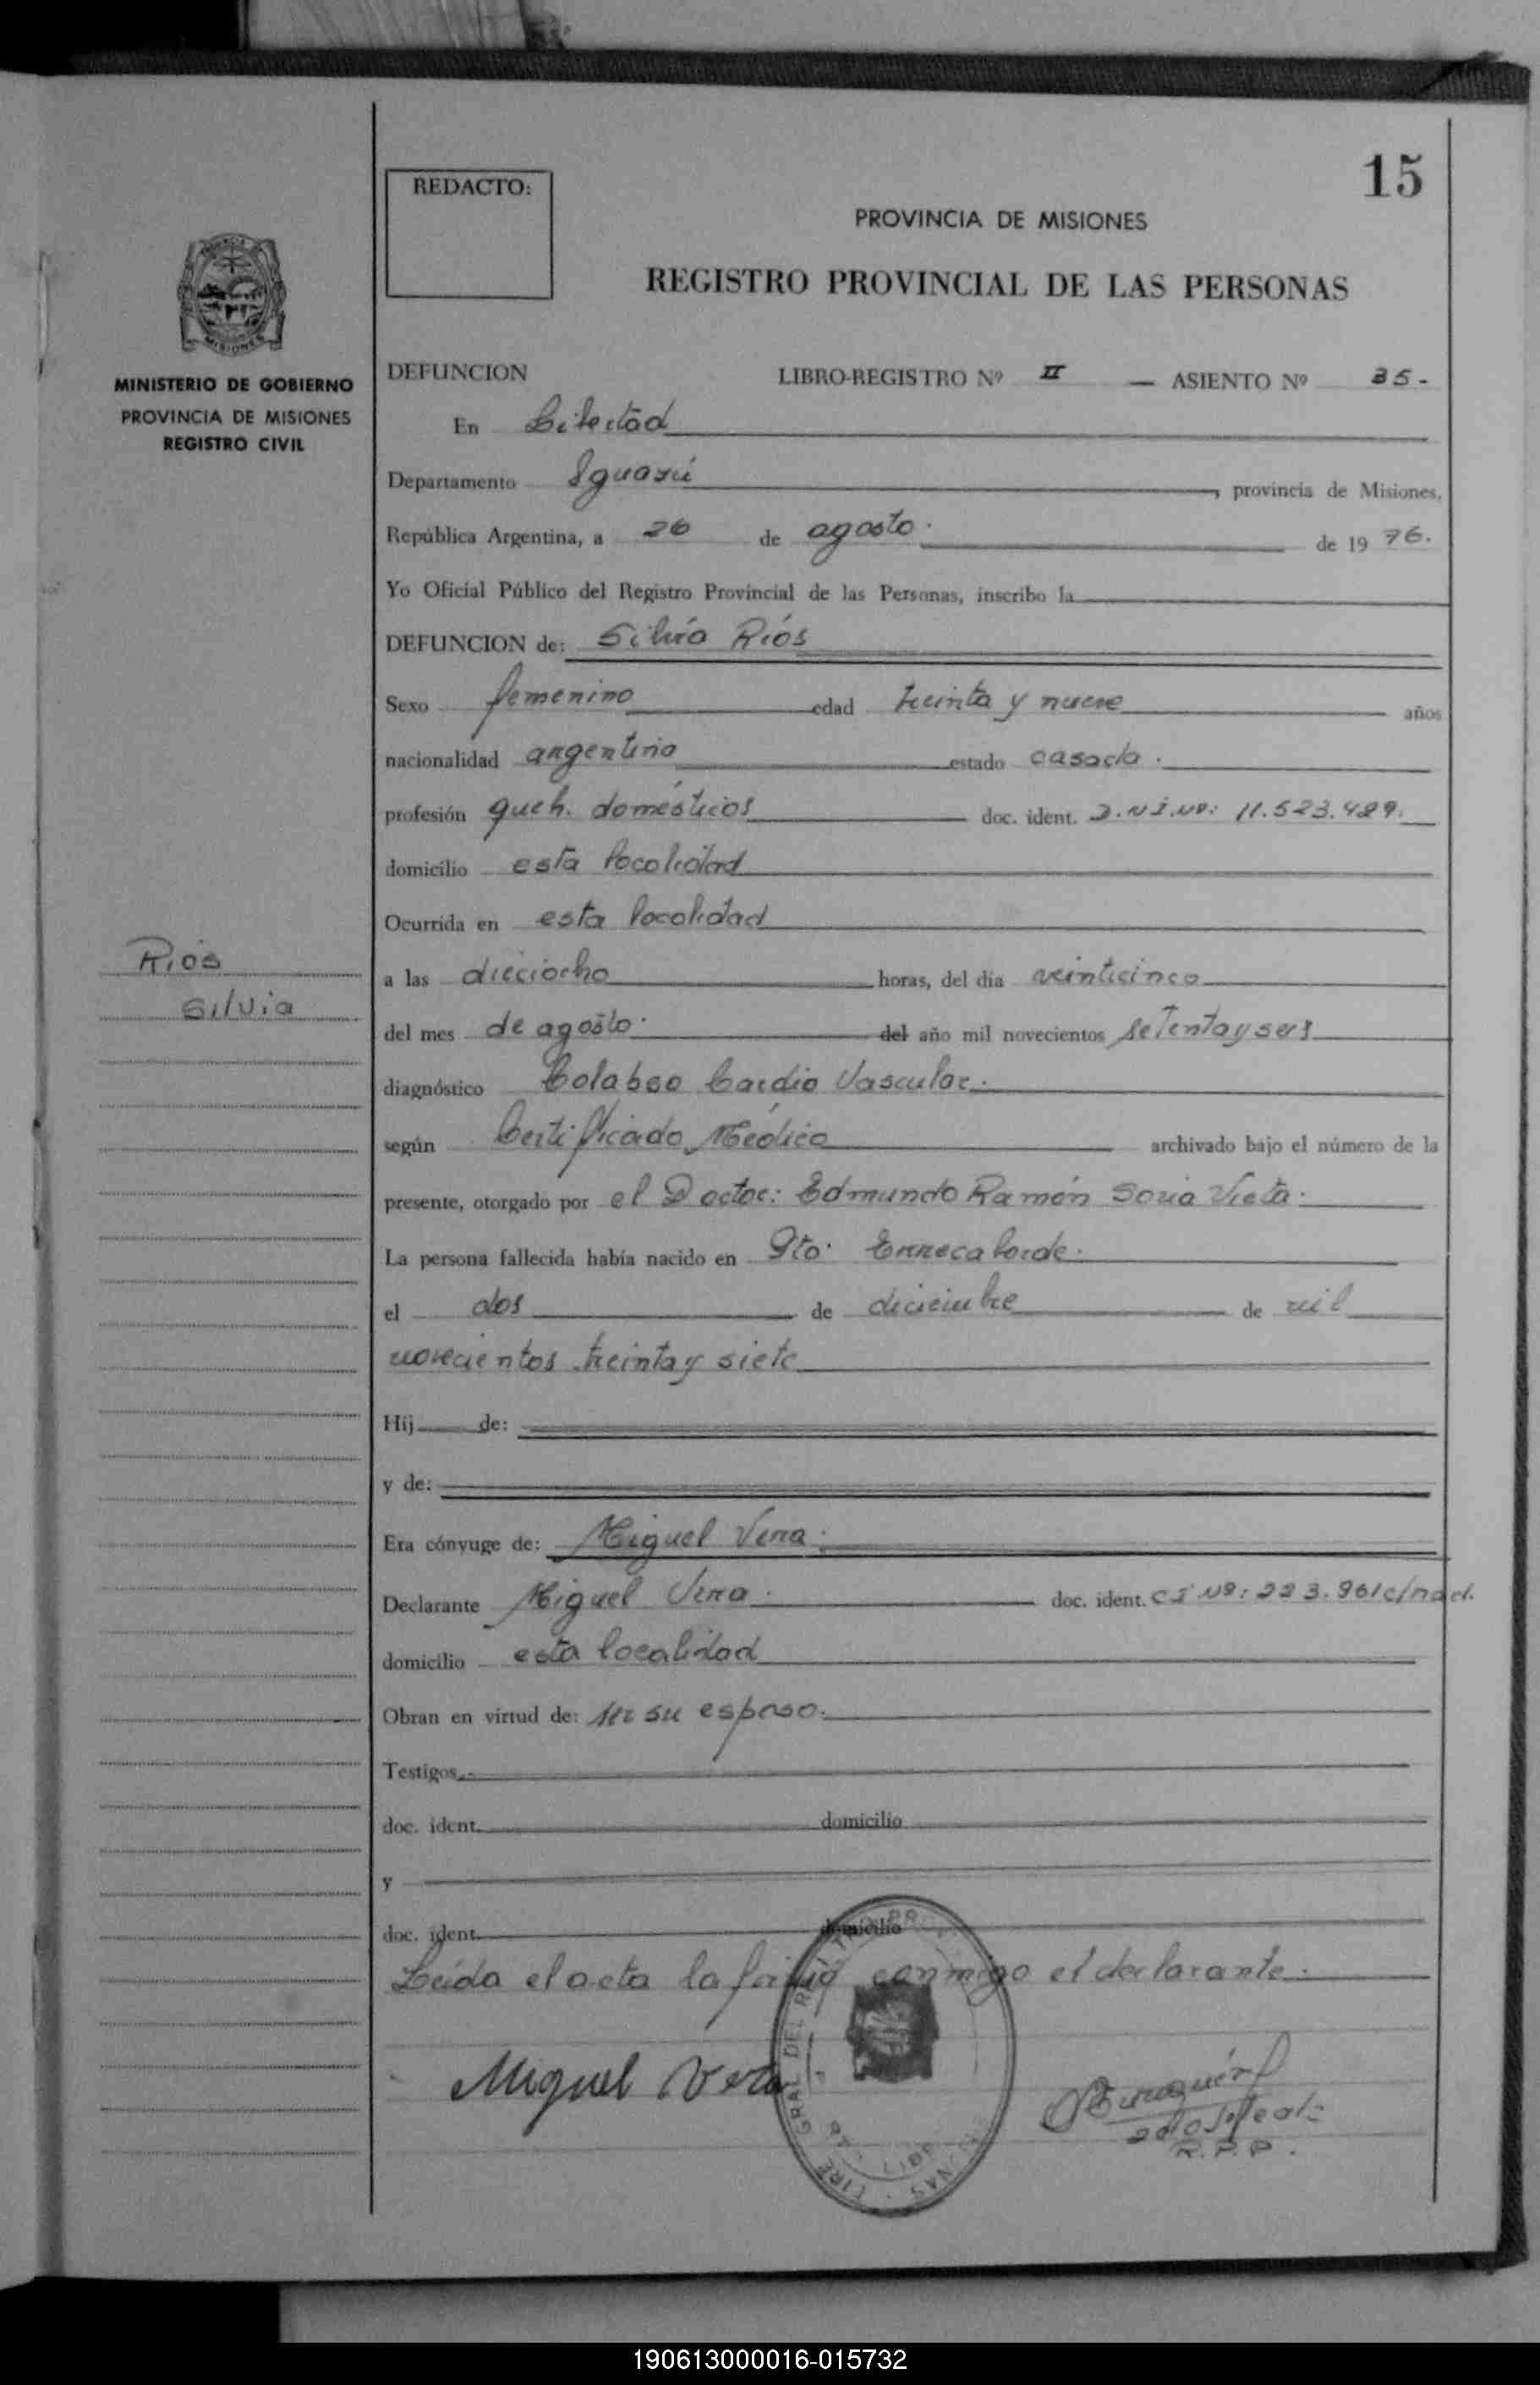 15
REDACTO:
PROVINCIA DE MISIONES
REGISTRO PROVINCIAL DE LAS PERSONAS
MISIONES
MINISTERIO DE GOBIERNO
PROVINCIA DE MISIONES
REGISTRO CIVIL
DEFUNCION LIBRO-REGISTRO Nº II — ASIENTO Nº 35-
En Libertad
Departamento Iguazú, provincia de Misiones,
República Argentina, a 26 de agosto. de 19 76.
Yo Oficial Público del Registro Provincial de las Personas, inscribo la
DEFUNCION de: Silvia Ríos
Sexo femenino edad treinta y nueve años
nacionalidad argentina estado casada.
profesión queh. domésticos doc. ident. D.N.I.Nº: 11.523.489.
domicilio esta localidad
Ocurrida en esta localidad
Ríos
Silvia
a las dieciocho horas, del día veinticinco
del mes de agosto. del año mil novecientos setenta y seis
diagnóstico Colapso Cardio Vascular.
según Certificado Médico archivado bajo el número de la
presente, otorgado por el Doctor: Edmundo Ramón Soria Vieta.
La persona fallecida había nacido en Pto. Errecaborde.
el dos de diciembre de mil
novecientos treinta y siete
Hij de:
y de:
Era cónyuge de: Miguel Vera.
Declarante Miguel Vera. doc. ident. CI Nº: 223.961 c/nacl.
domicilio esta localidad
Obran en virtud de: ser su esposo.
Testigos
doc. ident. domicilio
y
doc. ident. domicilio
Leída el acta la firma conmigo el declarante.
Miguel Vera
R.P.P.
190613000016-015732